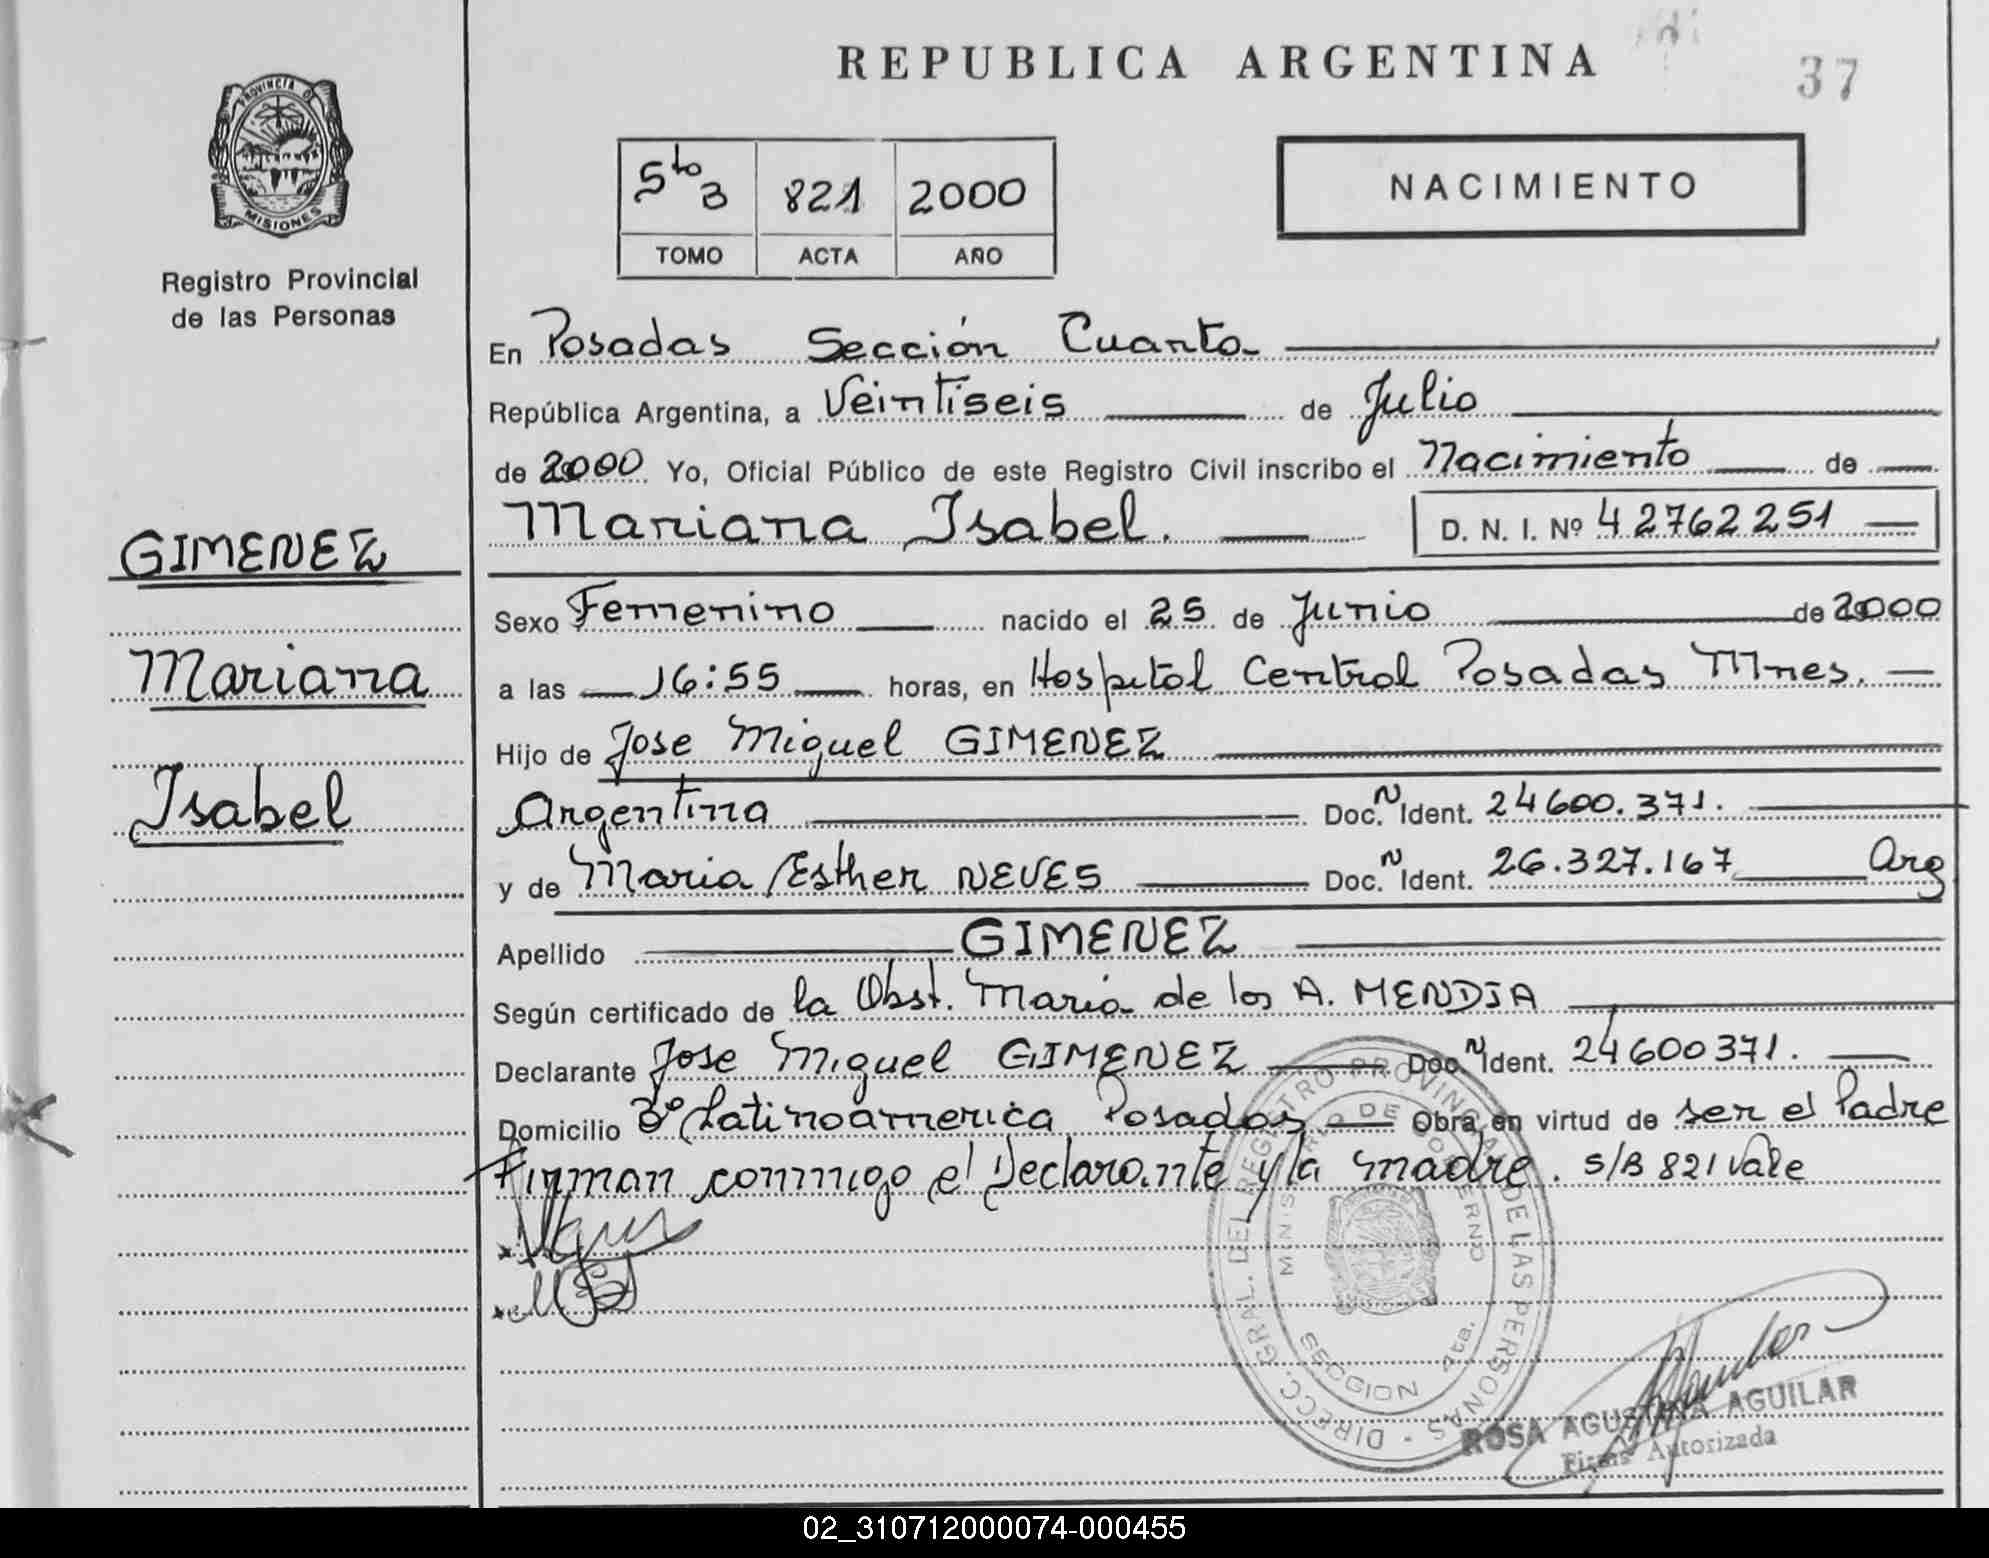 REPUBLICA ARGENTINA
37
PROVINCIA DE
MISIONES
Registro Provincial
de las Personas
5to B 821 2000
TOMO ACTA AÑO
NACIMIENTO
En Posadas Sección Cuarta
República Argentina, a Veintiseis de Julio
de 2000 Yo, Oficial Público de este Registro Civil inscribo el Nacimiento de
Mariana Isabel. D. N. I. Nº 42762251
GIMENEZ
Mariana
Isabel
Sexo Femenino nacido el 25 de Junio de 2000
a las 16:55 horas, en Hospital Central Posadas Mnes.
Hijo de Jose Miguel GIMENEZ
Argentina Doc. N Ident. 24600.371.
y de Maria Esther NEVES Doc. N Ident. 26.327.167 Arg
Apellido GIMENEZ
Según certificado de la Obst. Maria de los A. MENDIA
Declarante Jose Miguel GIMENEZ Doc. N Ident. 24600371.
Domicilio Bº Latinoamerica Posadas Obra en virtud de ser el Padre
Firman conmigo el Declarante y la madre. S/B 821 Vale
DIRECC. GRAL. DEL REGISTRO PROVINCIAL DE LAS PERSONAS
MINISTERIO DE GOBIERNO
SECCION 4ta.
ROSA AGUSTINA AGUILAR
Firma Autorizada
02_310712000074-000455